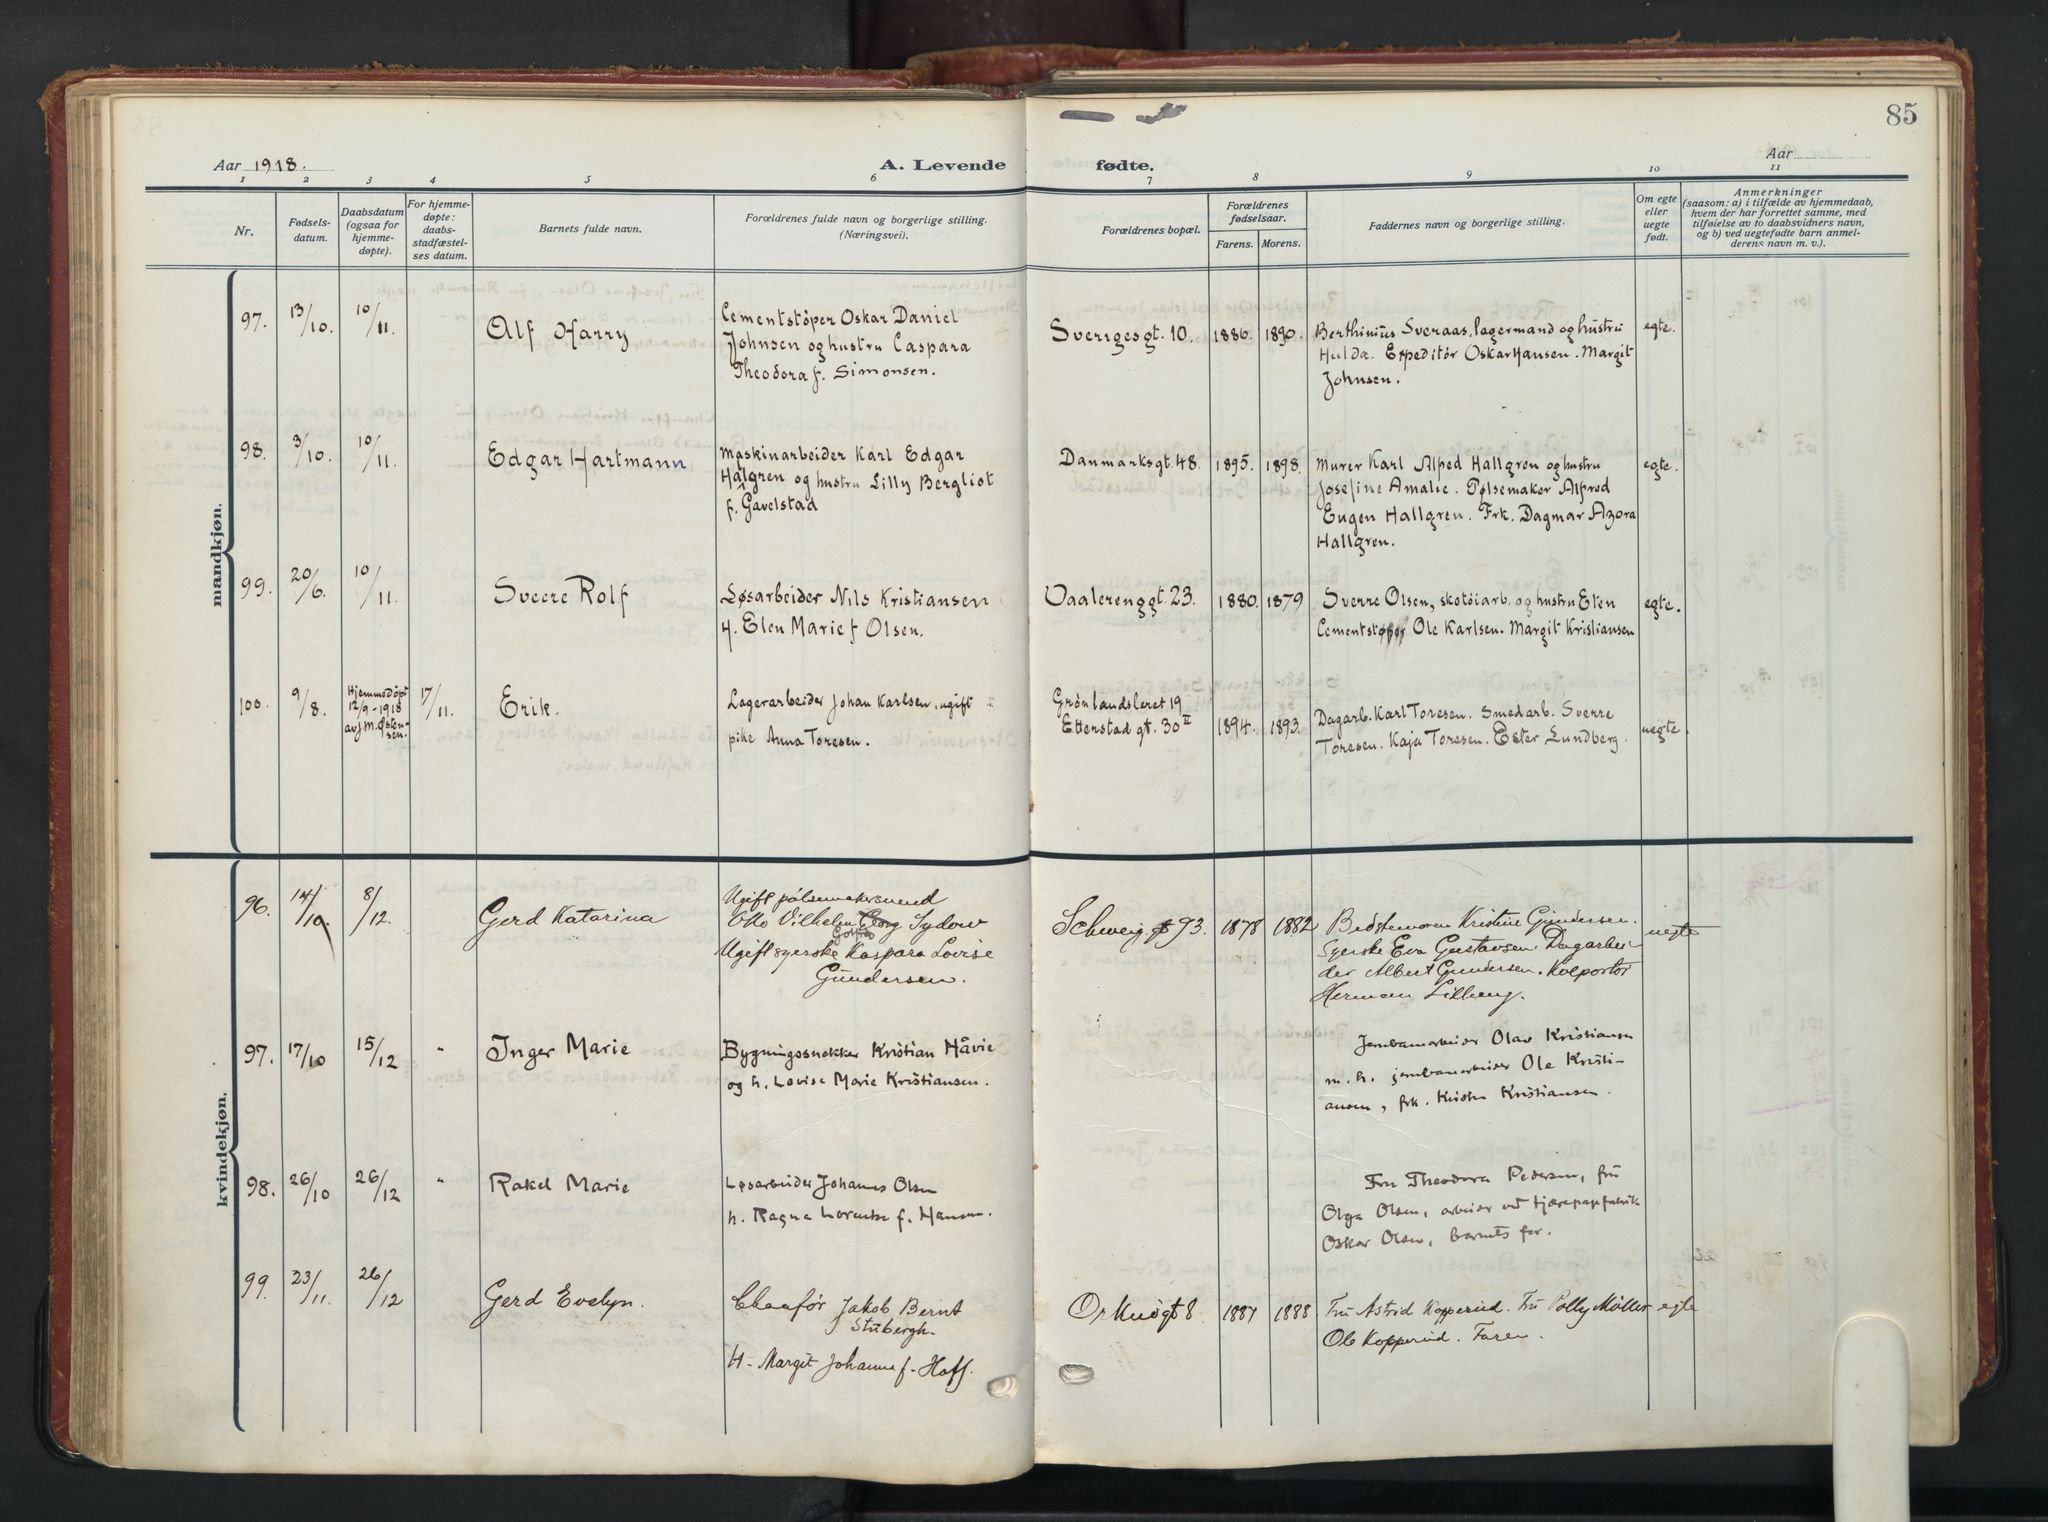 85
Aar 1918.
A. Levende fødte.
Aar
1 2 3 4 5 6 7 8 9 10 11
Nr.
Fødsels-
datum.
Daabsdatum
(ogsaa for
hjemme-
døpte).
For hjemme-
døpte:
daabs-
stadfæstel-
ses datum.
Barnets fulde navn.
Forældrenes fulde navn og borgerlige stilling.
(Næringsvei).
Forældrenes bopæl.
Forældrenes
fødselsaar.
Farens. Morens.
Faddernes navn og borgerlige stilling.
Om egte
eller
uegte
født.
Anmerkninger
(saasom: a) i tilfælde av hjemmedaab,
hvem der har forrettet samme, med
tilføielse av to daabsvidners navn,
og b) ved uegtefødte barn anmel-
derens navn m. v.).
mandkjøn.
97. 13/10. 10/11. Alf Harry
Cementstöper Oskar Daniel
Johnsen og hustru Caspara
Theodora f. Simonsen.
Sverigesgt. 10. 1886. 1890.
Berthinius Sveraas, lagermand og hustru
Hulda. Expeditör Oskar Hansen. Margit
Johnsen.
egte.
98. 3/10. 10/11. Edgar Hartmann
Maskinarbeider Karl Edgar
Halgren og hustru Lilly Bergliot
f. Gavelstad
Danmarksgt. 48. 1895. 1898.
Murer Karl Alfred Hallgren og hustru
Josefine Amalie. Pølsemaker Alfred
Eugen Hallgren. Frk. Dagmar Azora
Hallgren.
egte.
99. 20/6. 10/11. Sverre Rolf
Løsarbeider Nils Kristiansen
H. Elen Marie f Olsen.
Vaalerenggt. 23. 1880. 1879
Sverre Olsen, skotöiarb. og hustru Elen
Cementstøper Ole Karlsen. Margit Kristiansen
egte.
100. 9/8.
Hjemmedöpt
12/9-1918
av J. M. Østen-
sen.
17/11. Erik.
Lagerarbeider Johan Karlsen, ugift
pike Anna Toresen.
Grønlandsleret 19
Etterstad gt. 30 II
1894. 1893.
Dagarb. Karl Toresen. Smedarb. Sverre
Toresen. Kaja Toresen. Ester Lundberg.
uegte.
kvindekjøn.
96. 14/10. 8/12. Gerd Katarina
Ugift pølsemakersvend
Otto Vilhelm Georg Sydow
Ugift syerske Kaspara Lovise
Gundersen.
Schweigt 93. 1878 1882
Bedstemoren Kristine Gundersen.
Syerske Eva Gustavsen. Dagarbei-
der Albert Gundersen. Kolportör
Herman
uegte
97. 17/10 15/12 " Inger Marie
Bygningssnekker Kristian Håvie
og h. Lovise Marie Kristiansen.
Jernbanearbeider Olav Kristiansen
m. h. jernbanearbeider Ole Kristi-
ansen, frk. Kirsten Kristiansen.
98. 26/10 26/12 " Rakel Marie
Løsarbeider Johannes Olsen
h. Ragna Lorentse f. Hansen.
Fru Theodora Pedersen, fru
Olga Olsen, arbeider ved tjærepapfabrik
Oskar Olsen, barnets far.
99. 23/11. 26/12 Gerd Evelyn.
Chauför Jakob Bernt
Stubergh.
H. Margit Johanne f. Hoff.
Orknögt 8. 1887 1888
Fru Astrid Kopperud. Fru Polly Möller
Ole Kopperud. Faren.
egte